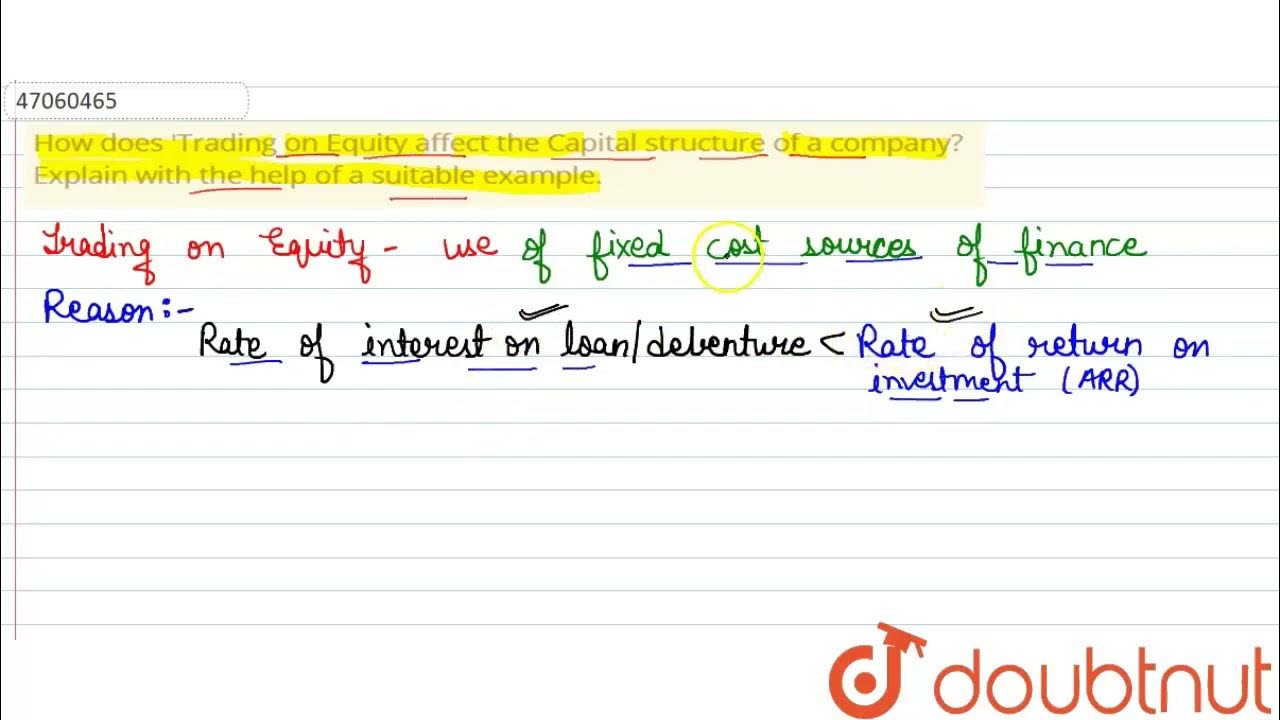 47060465
How does 'Trading on Equity affect the Capital structure of a company?
Explain with the help of a suitable example.
Trading on Equity - use of fixed cost sources of finance
Reason:-
Rate of interest on loan/debenture < Rate of return on
investment (ARR)
doubtnut